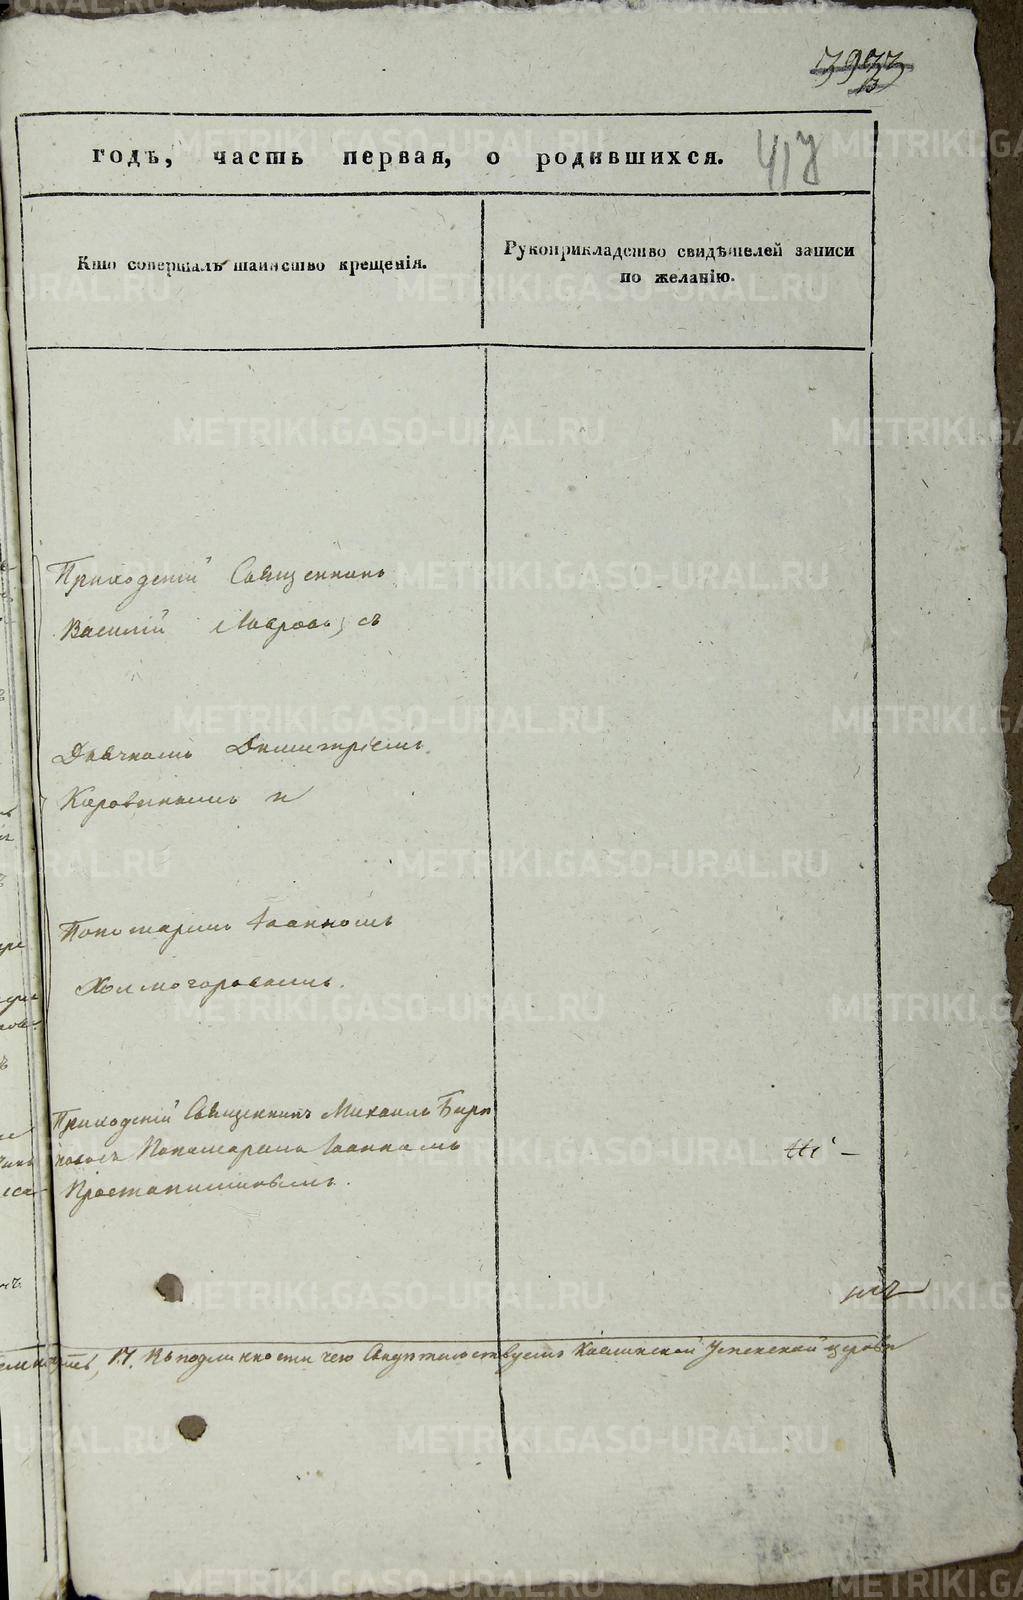 годъ, часть первая, о родившихся.
417
Кто совершалъ таинство крещенія.
Рукоприкладство свидѣтелей записи
по желанію.
Приходскій Священникъ
Василій Лавровъ, съ
Дьячкомъ Димитріемъ
Коровинымъ и
Пономаремъ Іоанномъ
Холмогоровымъ.
Приходскій Священникъ Михаилъ Бирю
ковъ съ Пономаремъ Іоанномъ
17. Въ подлинности чего Свидѣтельствуемъ Успенской церкви
METRIKI.GASO-URAL.RU